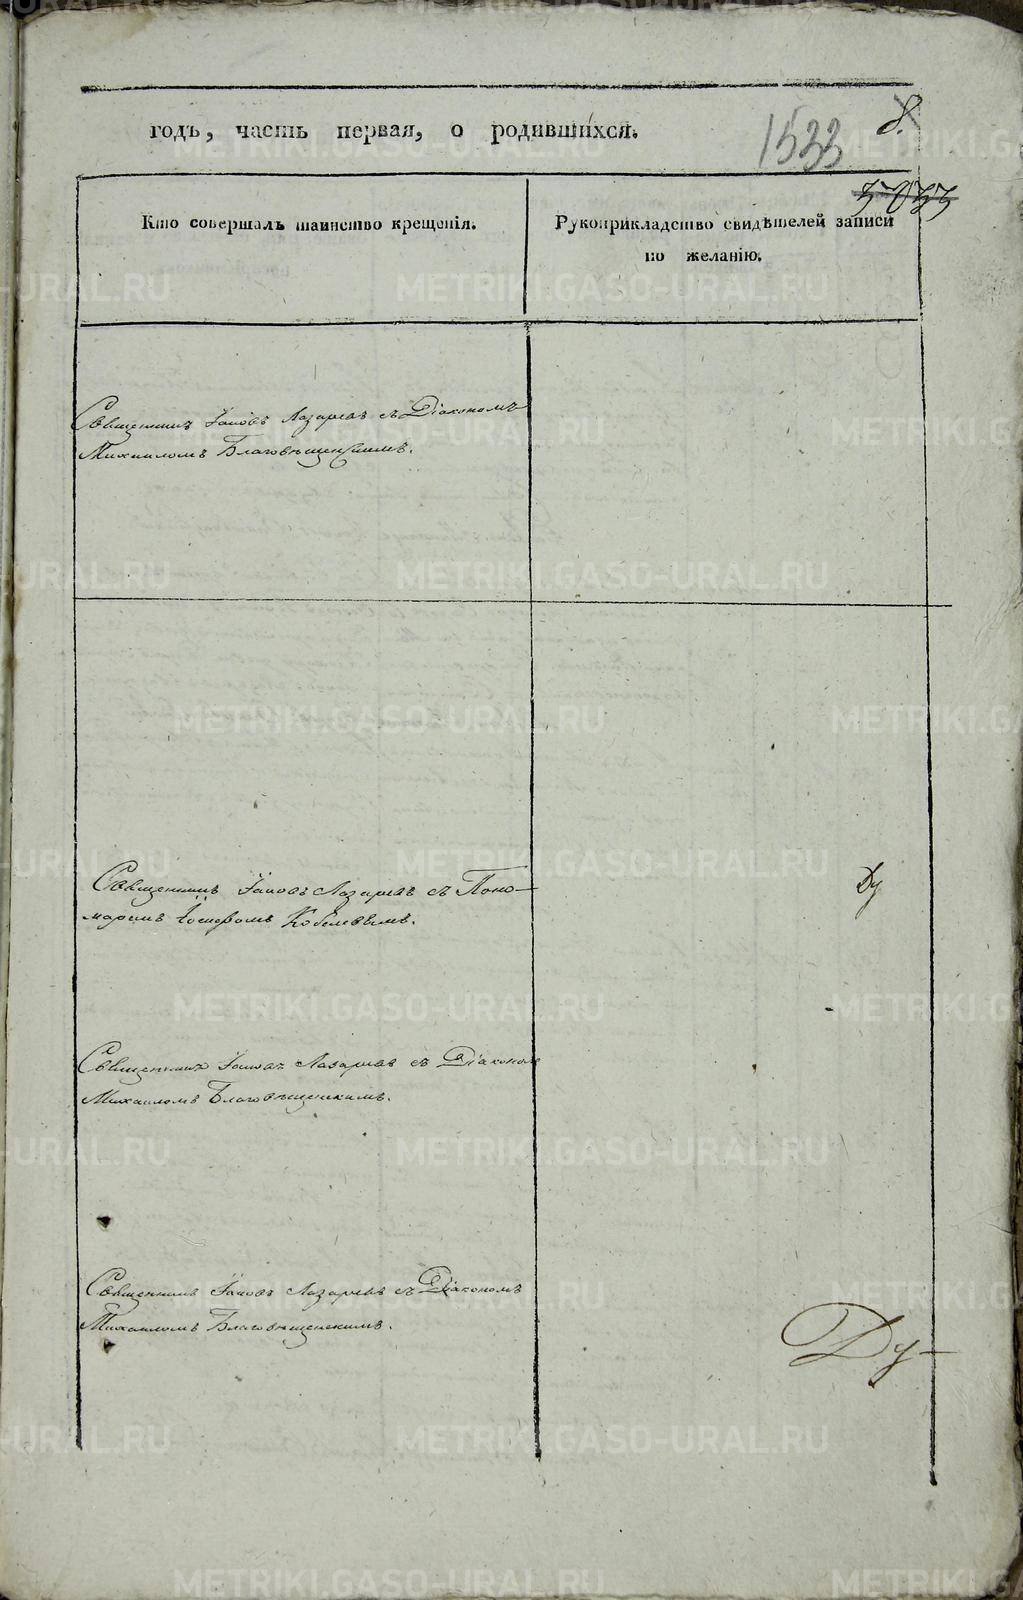 годъ, часть первая, о родившихся.
1533
8.
Кто совершалъ таинство крещенія.
Рукоприкладство свидѣтелей записи
по желанію.
Священникъ Іаковъ Лазаревъ съ Діакономъ
Михаиломъ Благовѣщенскимъ.
Священникъ Іаковъ Лазаревъ съ Поно-
маремъ Іосифомъ Кобелевымъ.
Ду
Священникъ Іаковъ Лазаревъ съ Діакономъ
Михаиломъ Благовѣщенскимъ.
Священникъ Іаковъ Лазаревъ съ Діакономъ
Михаиломъ Благовѣщенскимъ.
Ду-
METRIKI.GASO-URAL.RU